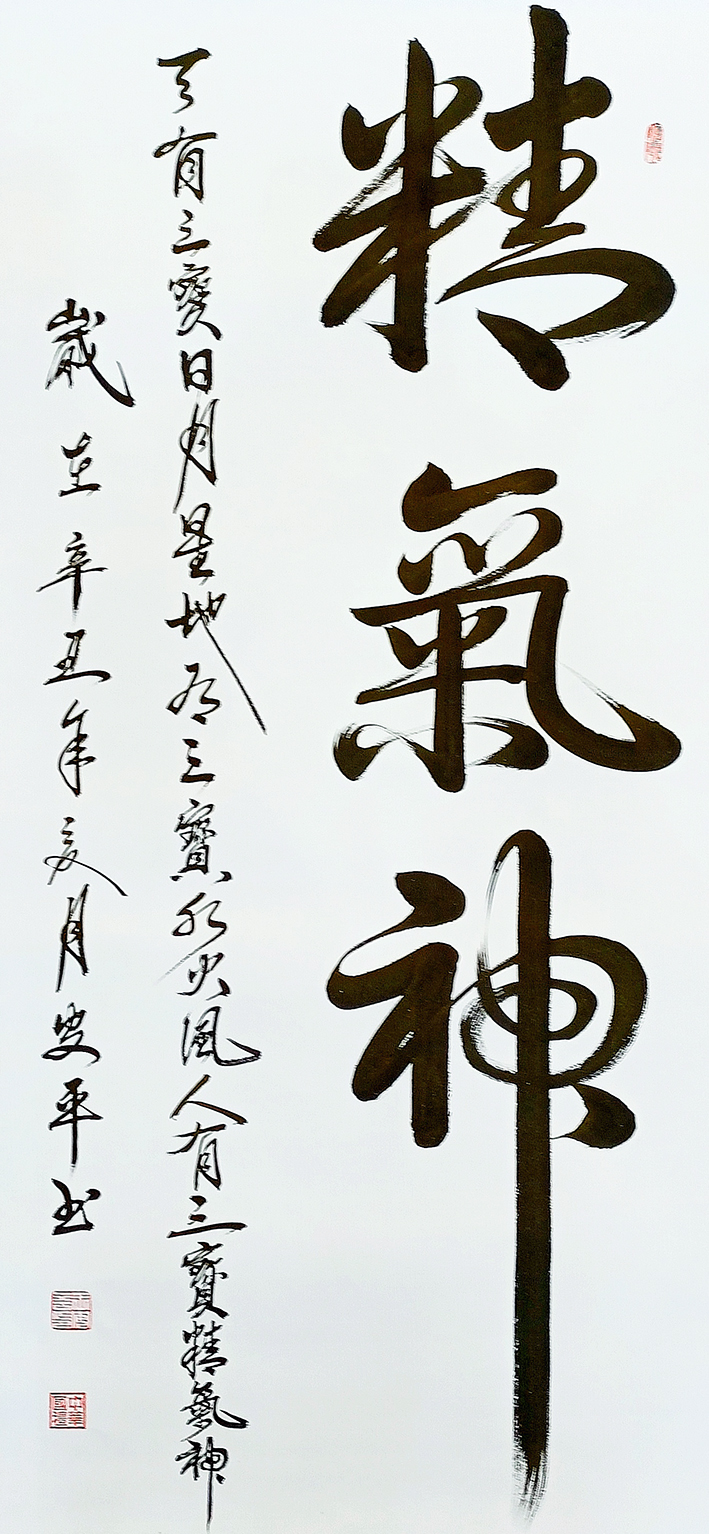 精氣神
天有三寶日月星地有三寶水火風人有三寶精氣神
歲在辛丑年月平书